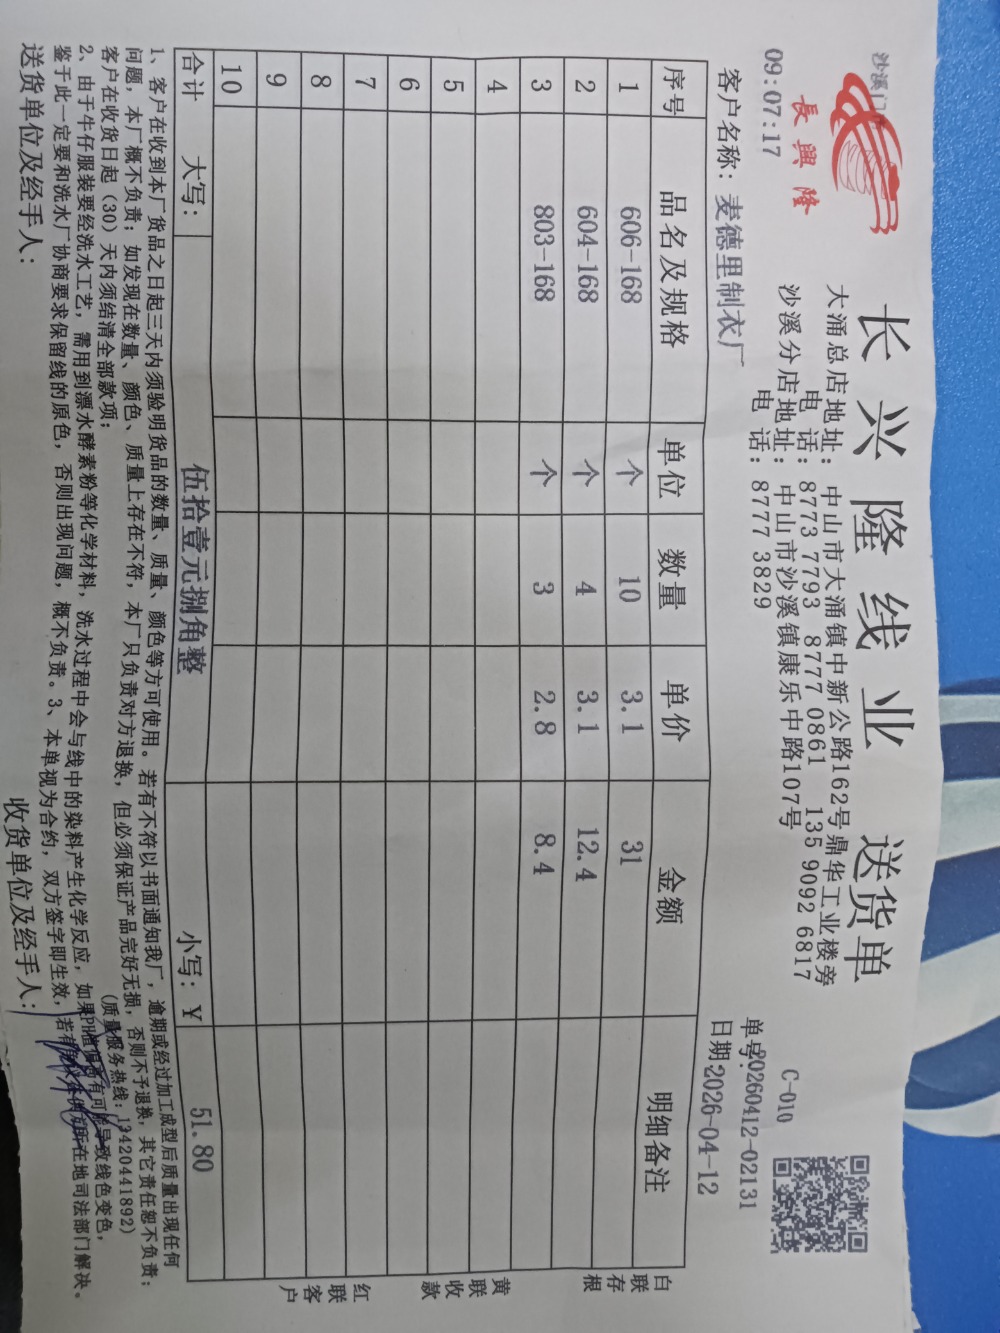 沙溪门
長興隆
09:07:17
长兴隆线业 送货单
大涌总店地址：中山市大涌镇中新公路162号鼎华工业楼旁
电话：8773 7793 8777 0861 135 9092 6817
沙溪分店地址：中山市沙溪镇康乐中路107号
电话：8777 3829
C-010
单号：20260412-02131
客户名称：麦德里制衣厂 日期 2026-04-12
序号 品名及规格 单位 数量 单价 金额 明细备注
1 606-168 个 10 3.1 31
2 604-168 个 4 3.1 12.4
3 803-168 个 3 2.8 8.4
4
5
6
7
8
9
10
合计 大写： 伍拾壹元捌角整 小写：¥ 51.80
白联存根
黄联收款
红联客户
1、客户在收到本厂货品之日起三天内须验明货品的数量、质量、颜色等方可使用。若有不符以书面通知我厂，逾期或经过加工成型后质量出现任何
问题，本厂概不负责；如发现在数量、颜色、质量上存在不符，本厂只负责对方退换，但必须保证产品完好无损，否则不予退换，其它责任恕不负责；
客户在收货日起（30）天内须结清全部款项； （质量服务热线：13420441892）
2、由于牛仔服装要经洗水工艺，需用到漂水酵素粉等化学材料，洗水过程中会与线中的染料产生化学反应，如果PH值偏高有可能导致线色变色，
鉴于此一定要和洗水厂协商要求保留线的原色，否则出现问题，概不负责。3、本单视为合约，双方签字即生效，若有 所在地司法部门解决。
送货单位及经手人： 收货单位及经手人：